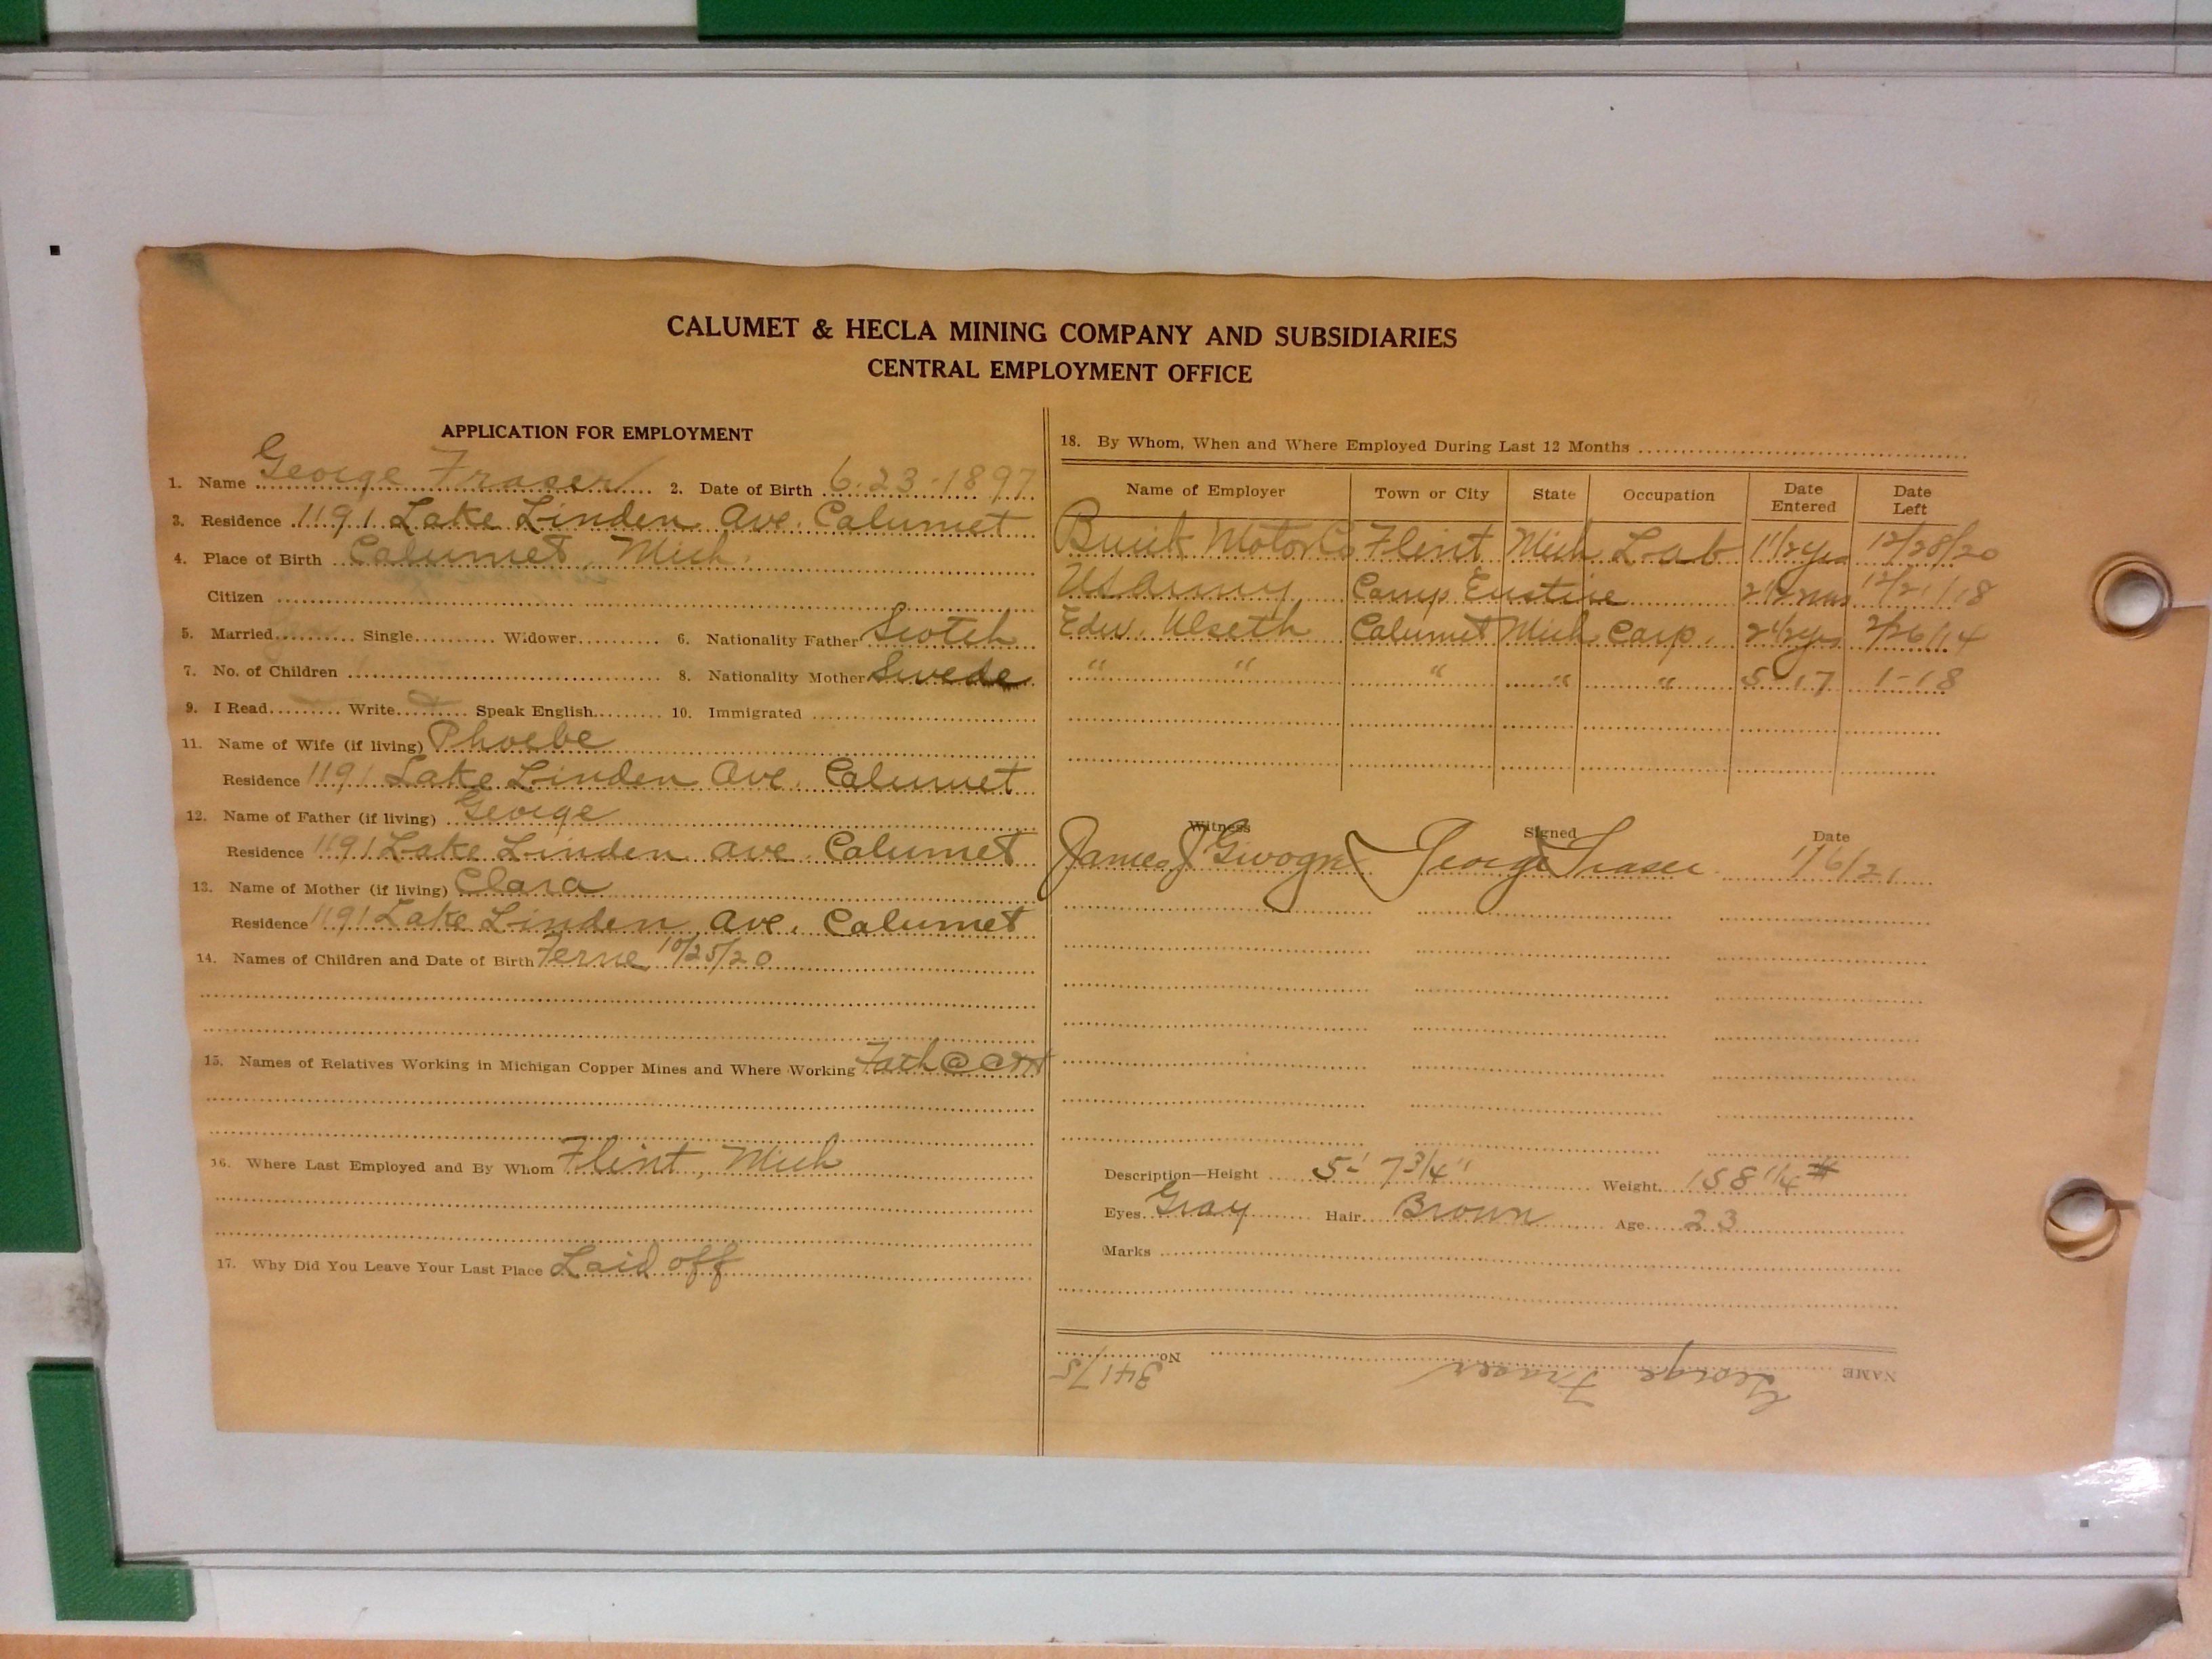 CALUMET & HECLA MINING COMPANY AND SUBSIDIARIES
CENTRAL EMPLOYMENT OFFICE
APPLICATION FOR EMPLOYMENT
1. Name George Fraser 2. Date of Birth 6-23-1897
3. Residence 1191 Lake Linden Ave. Calumet
4. Place of Birth Calumet, Mich.
Citizen
5. Married Single Widower 6. Nationality Father Scotch
7. No. of Children 1 8. Nationality Mother Swede
9. I Read Write Speak English 10. Immigrated
11. Name of Wife (if living) Phoebe
Residence 1191 Lake Linden Ave. Calumet
12. Name of Father (if living) George
Residence 1191 Lake Linden ave. Calumet
13. Name of Mother (if living) Clara
Residence 1191 Lake Linden ave. Calumet
14. Names of Children and Date of Birth Ferne 10/25/20
15. Names of Relatives Working in Michigan Copper Mines and Where Working Fath @ C&H
16. Where Last Employed and By Whom Flint, Mich
17. Why Did You Leave Your Last Place Laid off
18. By Whom, When and Where Employed During Last 12 Months
Name of Employer Town or City State Occupation Date Entered Date Left
Buick Motor Co Flint Mich Lab 1 1/2 yrs 12/28/20
US Army Camp Eustice 2 1/2 mos 12/21/18
Edw. Ulseth Calumet Mich Carp. 2 1/2 yrs 2/26/14
" " " " " 5-17 1-18
Witness Signed Date
James J George Fraser 1/6/21
Description—Height 5' 7 3/4" Weight 158 1/4 #
Eyes Gray Hair Brown Age 23
Marks
NAME George Fraser No. 34175